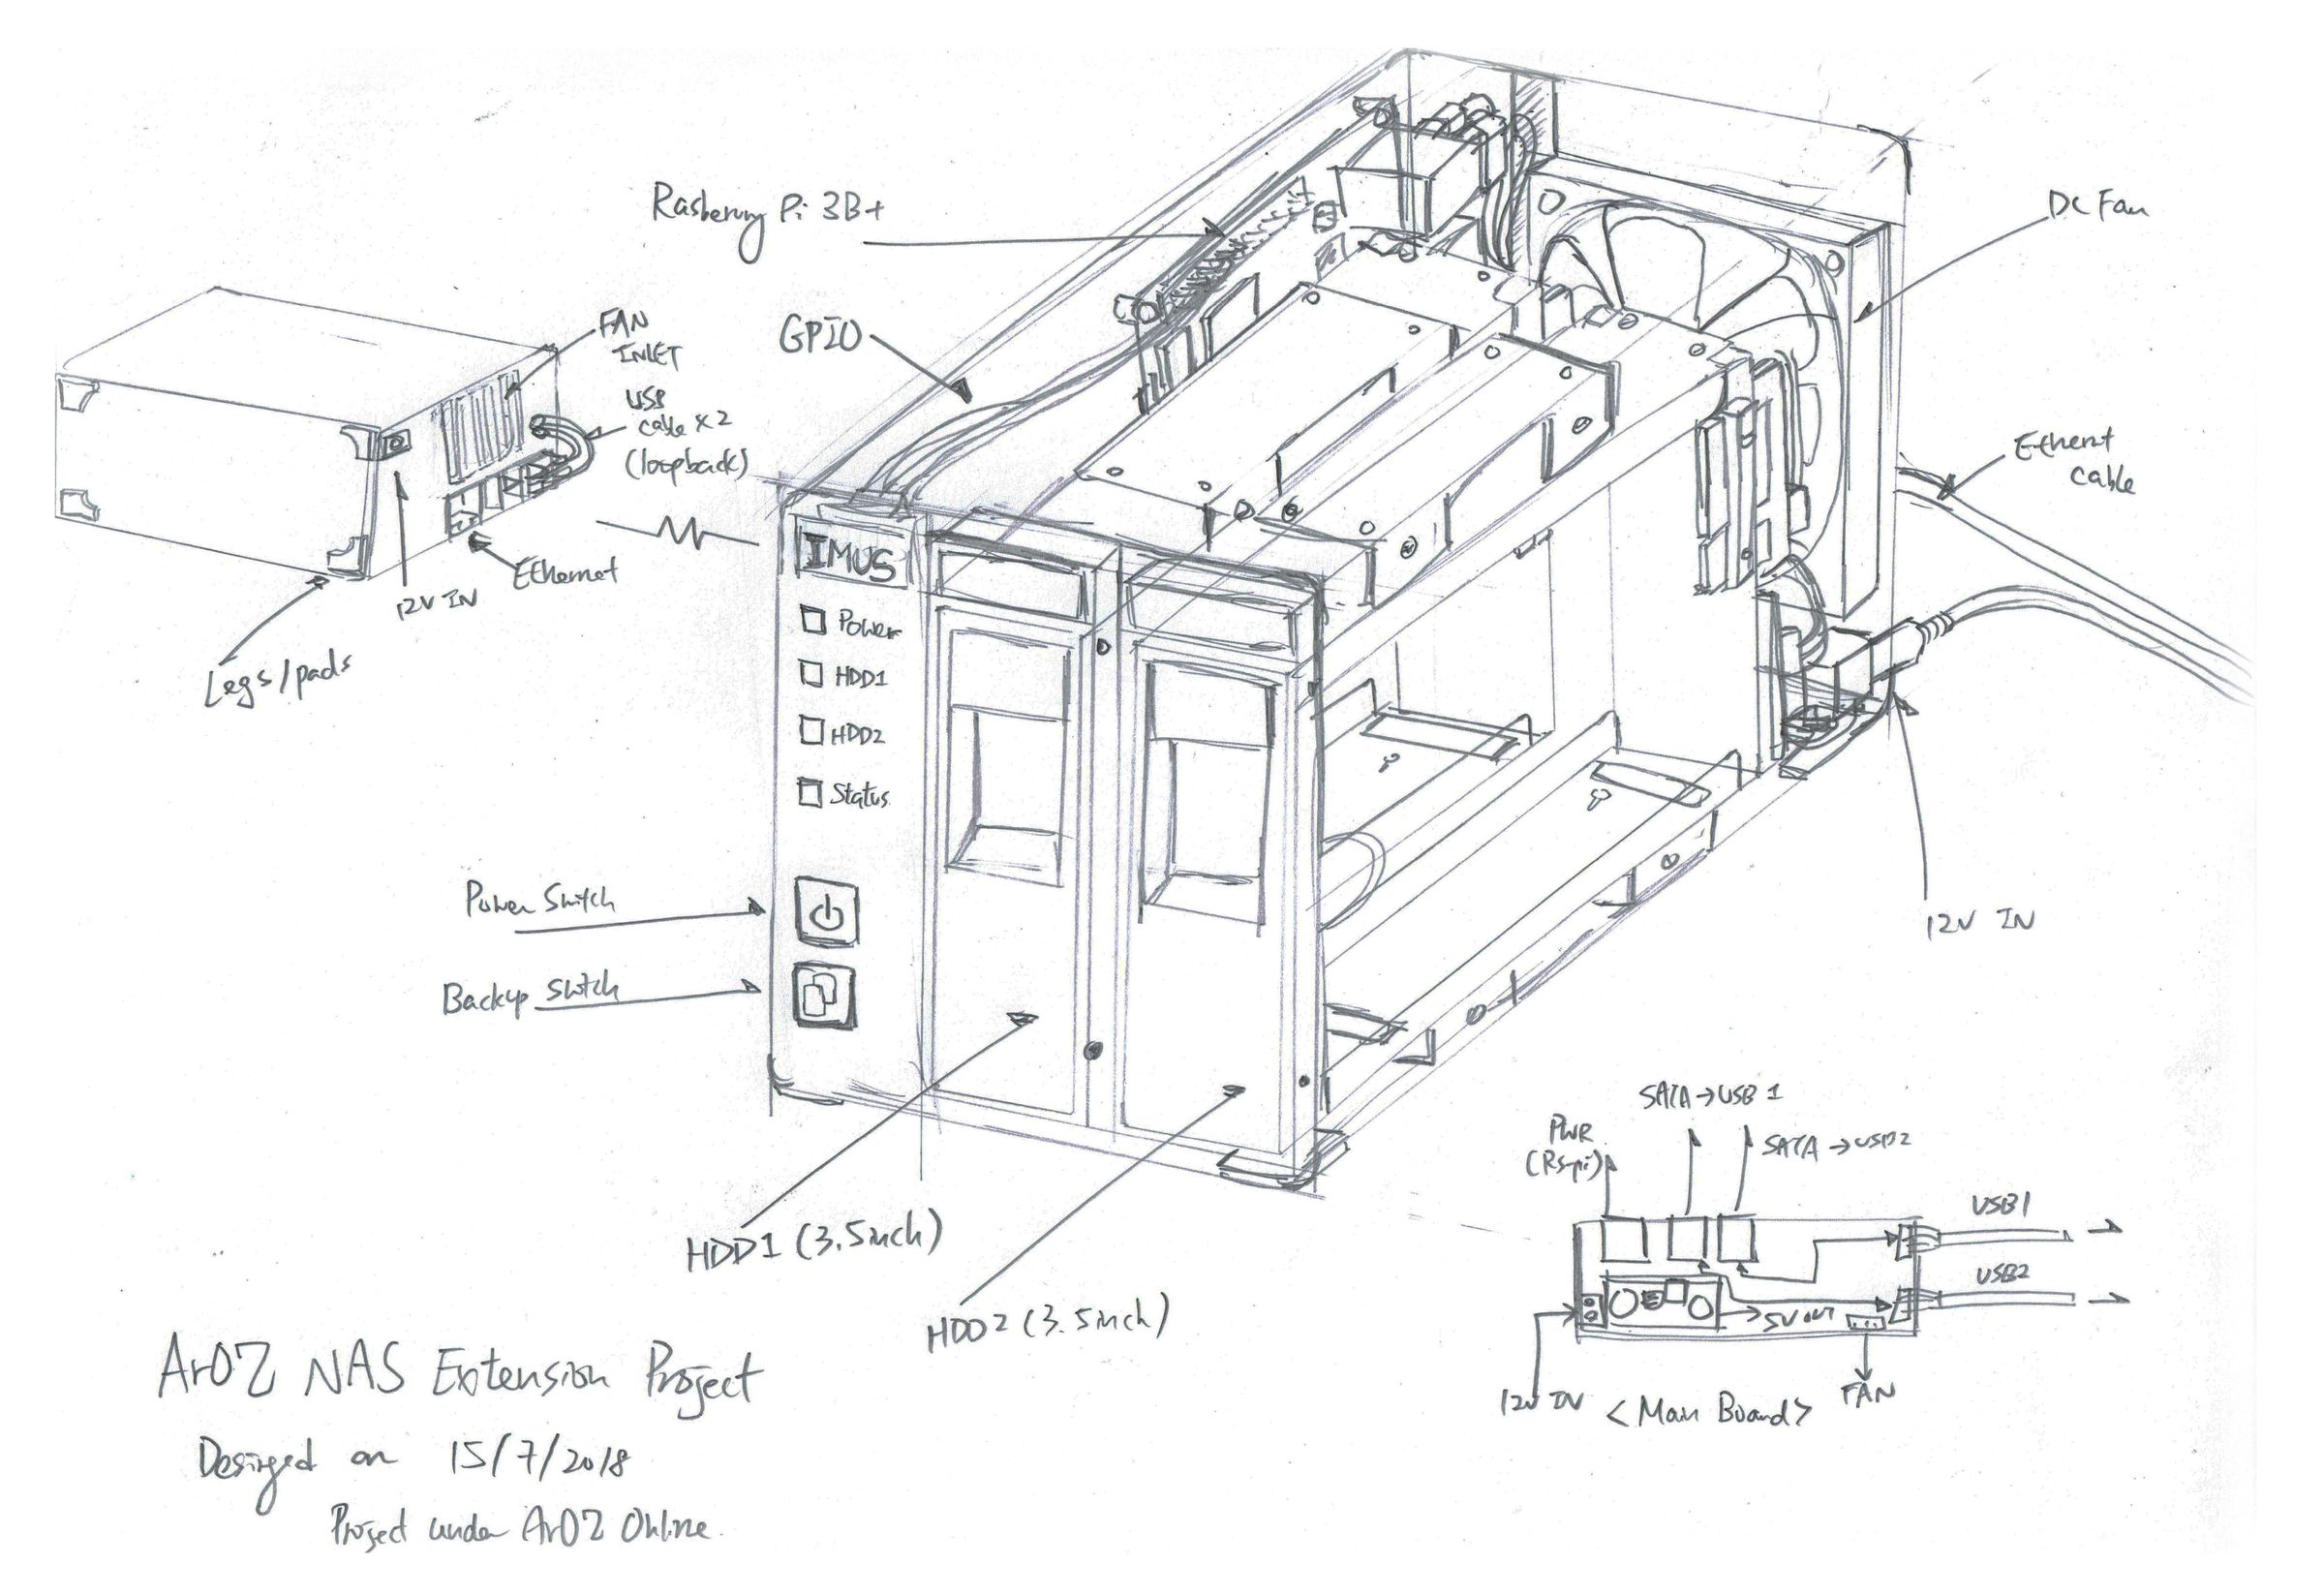 Rasberung Pi 3B+
DC Fan
GPIO
FAN
INLET
USB
cable x 2
(loopback)
Ethernet
12V IN
Legs/pads
Ethernt
cable
IMUS
Power
HDD1
HDD2
Status
Power Switch
Backup Switch
12V IN
HDD1 (3.5inch)
HDD2 (3.5inch)
SATA→USB 1
PWR
(Rspi)
SATA→USB2
USB1
USB2
5V OUT
12V IN
<Main Board>
FAN
ArOZ NAS Extension Project
Desinged on 15/7/2018
Project under ArOZ Online.